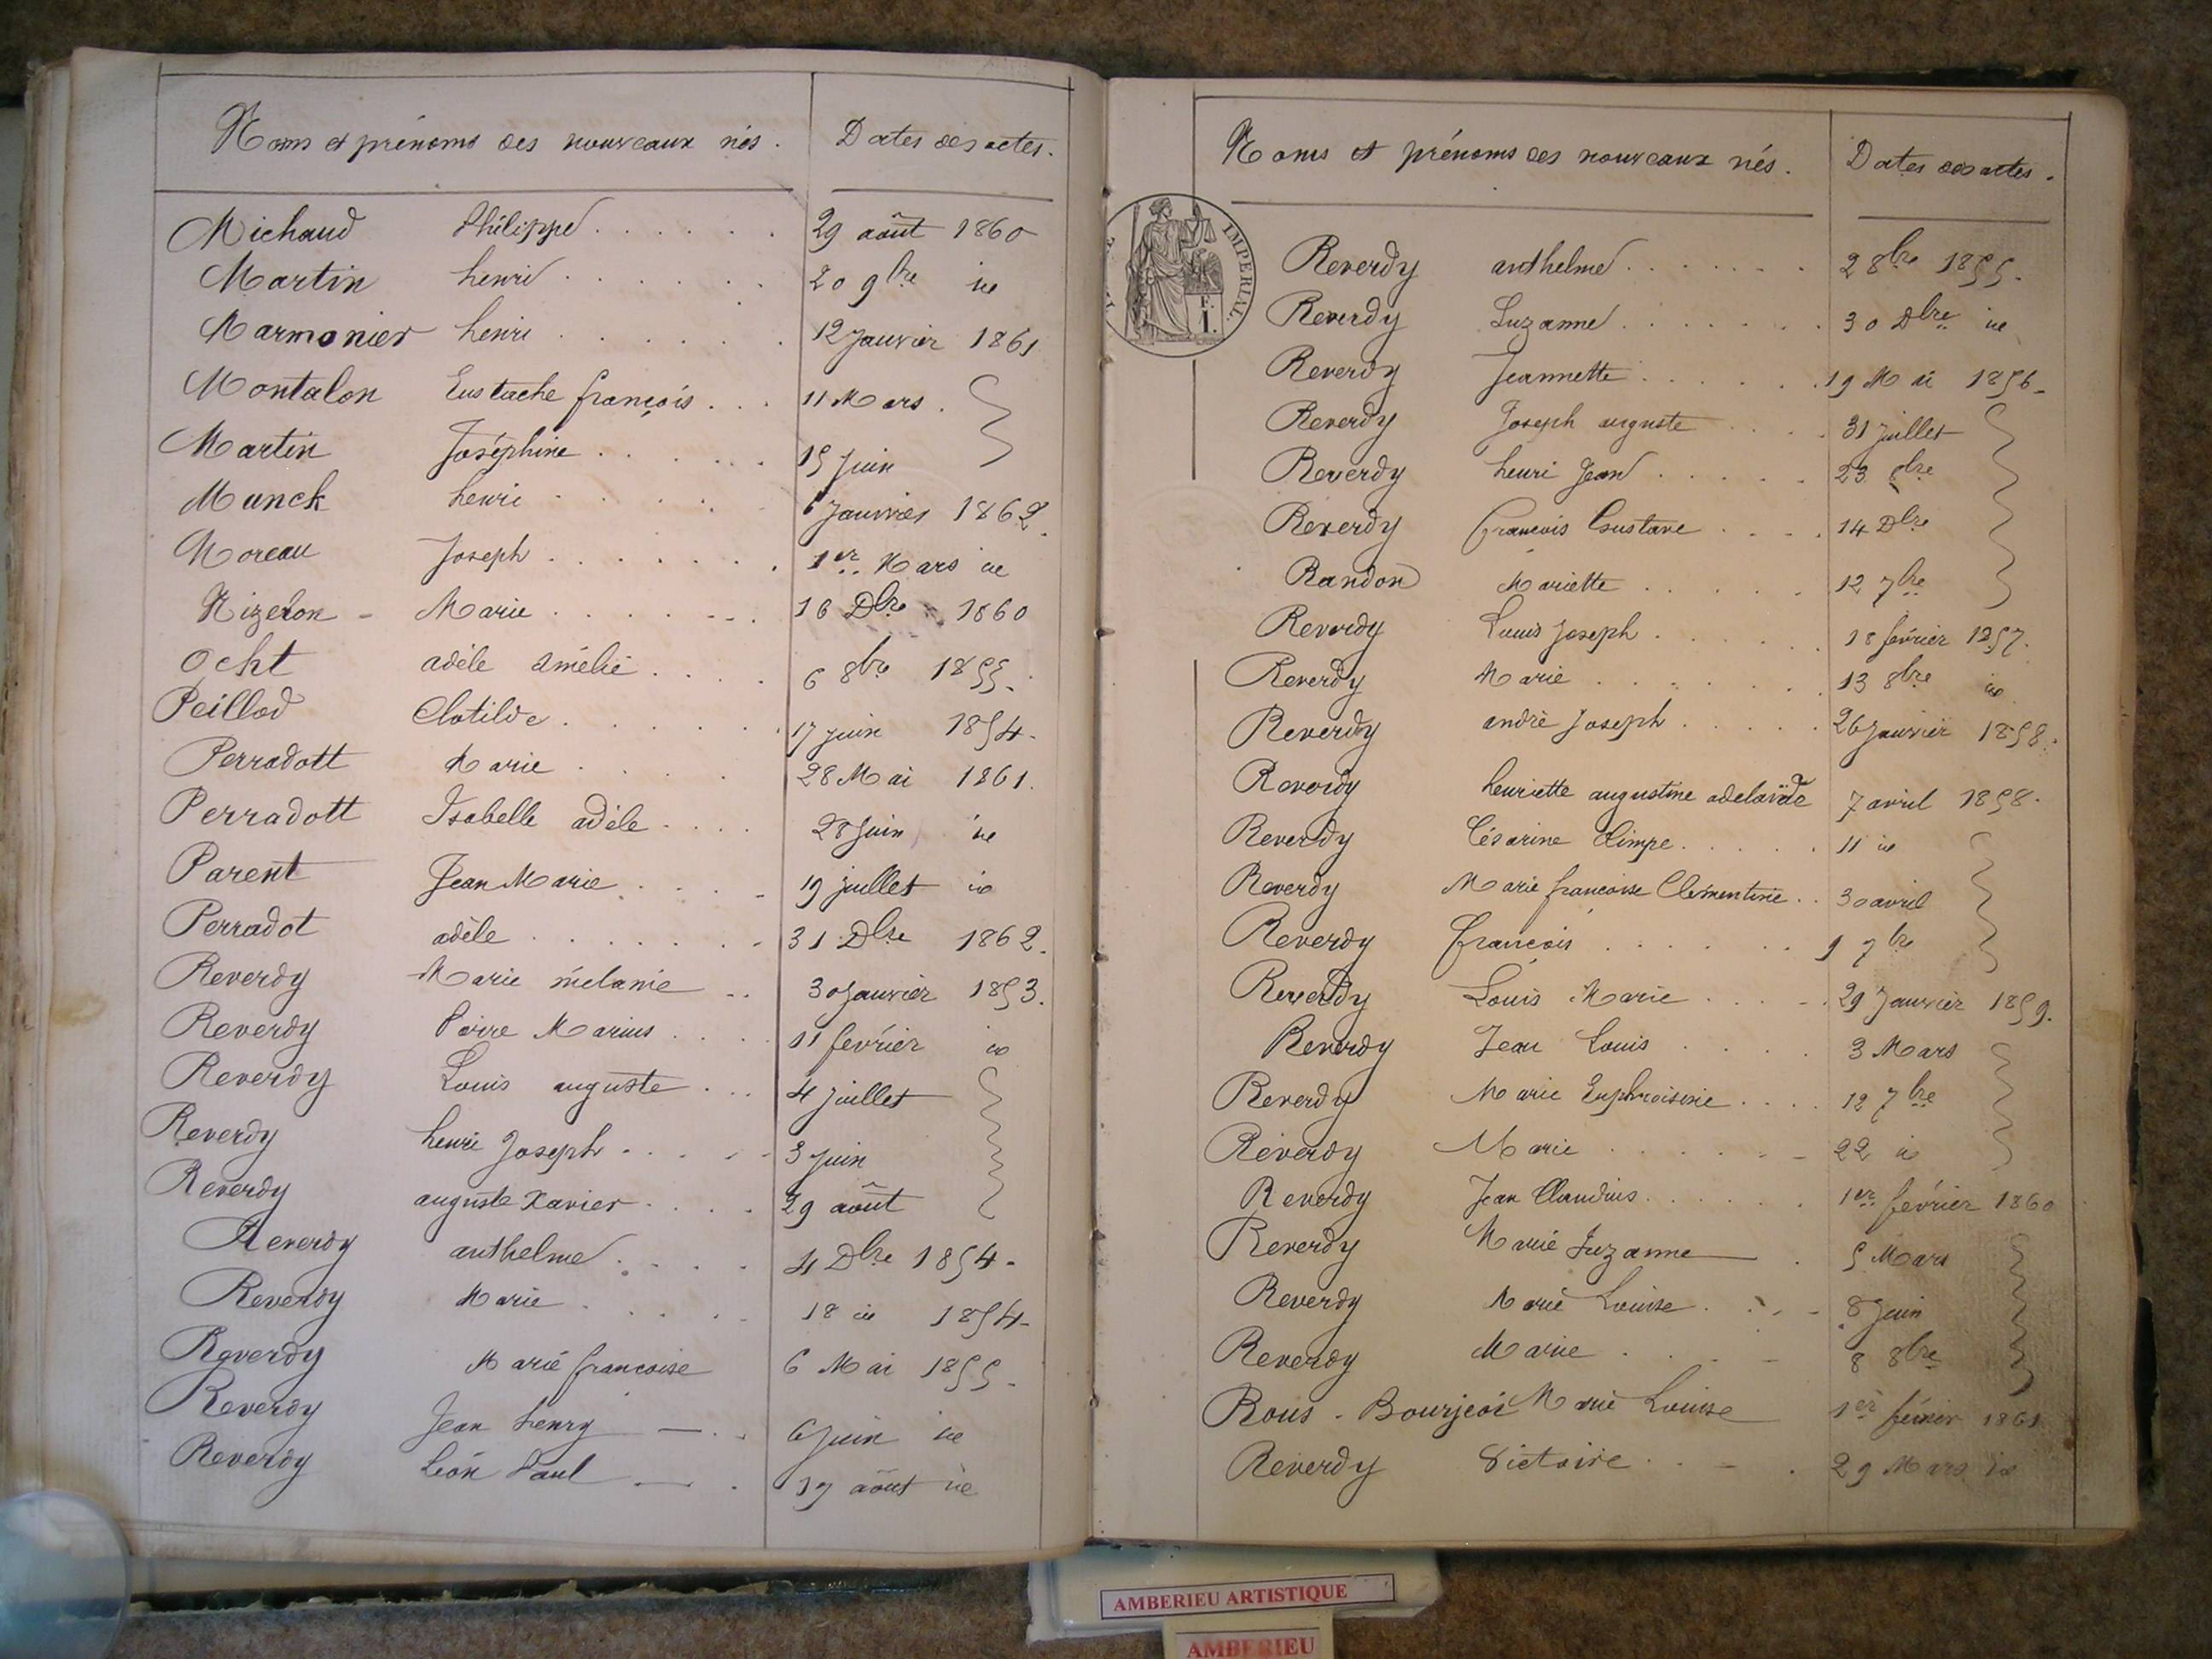 Noms et prénoms des nouveaux nés. Dates des actes.
Michaud Philippe 29 août 1860
Martin henri 20 9bre id
Marmonier henri 12 Janvier 1861
Montalon Eustache françois 11 Mars
Martin Joséphine 15 Juin
Munck henri 6 Janvier 1862
Moreau Joseph 1er Mars id
Nizeron - Marie 16 Dbre 1860
Ocht adèle amélie 6 8bre 1855
Peillod Clotilde 17 juin 1854
Perradott Marie 28 Mai 1861
Perradott Isabelle adèle 28 Juin id
Parent Jean Marie 19 juillet id
Perradot adèle 31 Dbre 1862
Reverdy Marie mélanie 30 Janvier 1853
Reverdy Pierre Marius 11 février id
Reverdy Louis auguste 4 juillet
Reverdy henri Joseph 3 Juin
Reverdy auguste Xavier 29 août
Reverdy anthelme 4 Dbre 1854
Reverdy Marie 18 id 1854
Reverdy Marie francoise 6 Mai 1855
Reverdy Jean henry 6 Juin id
Reverdy Léon Paul 17 août id
Noms et prénoms des nouveaux nés. Dates des actes.
IMPERIAL
F.
1.
Reverdy anthelme 2 8bre 1855
Reverdy Suzanne 30 Dbre id
Reverdy Jeannette 19 Mai 1856
Reverdy Joseph auguste 31 Juillet
Reverdy henri Jean 23 8bre
Reverdy francois Gustave 14 Dbre
Randon Mariette 12 7bre
Reverdy Louis Joseph 18 février 1857
Reverdy Marie 13 8bre id
Reverdy andrè Joseph 26 Janvier 1858
Reverdy henriette augustine adelaïde 7 avril 1858
Reverdy Césarine Olimpe 11 id
Reverdy Marie francoise Clementine 30 avril
Reverdy francois 1 7bre
Reverdy Louis Marie 29 Janvier 1859
Reverdy Jean Louis 3 Mars
Reverdy Marie Euphroisine 12 7bre
Reverdy Marie 22 id
Reverdy Jean Claudius 1er février 1860
Reverdy Marie Suzanne 5 Mars
Reverdy Marie Louise 8 Juin
Reverdy Marie 8 8bre
Rous - Bourjeoi Marie Louise 1er février 1861
Reverdy Victoire 29 Mars id
AMBERIEU ARTISTIQUE
AMBERIEU